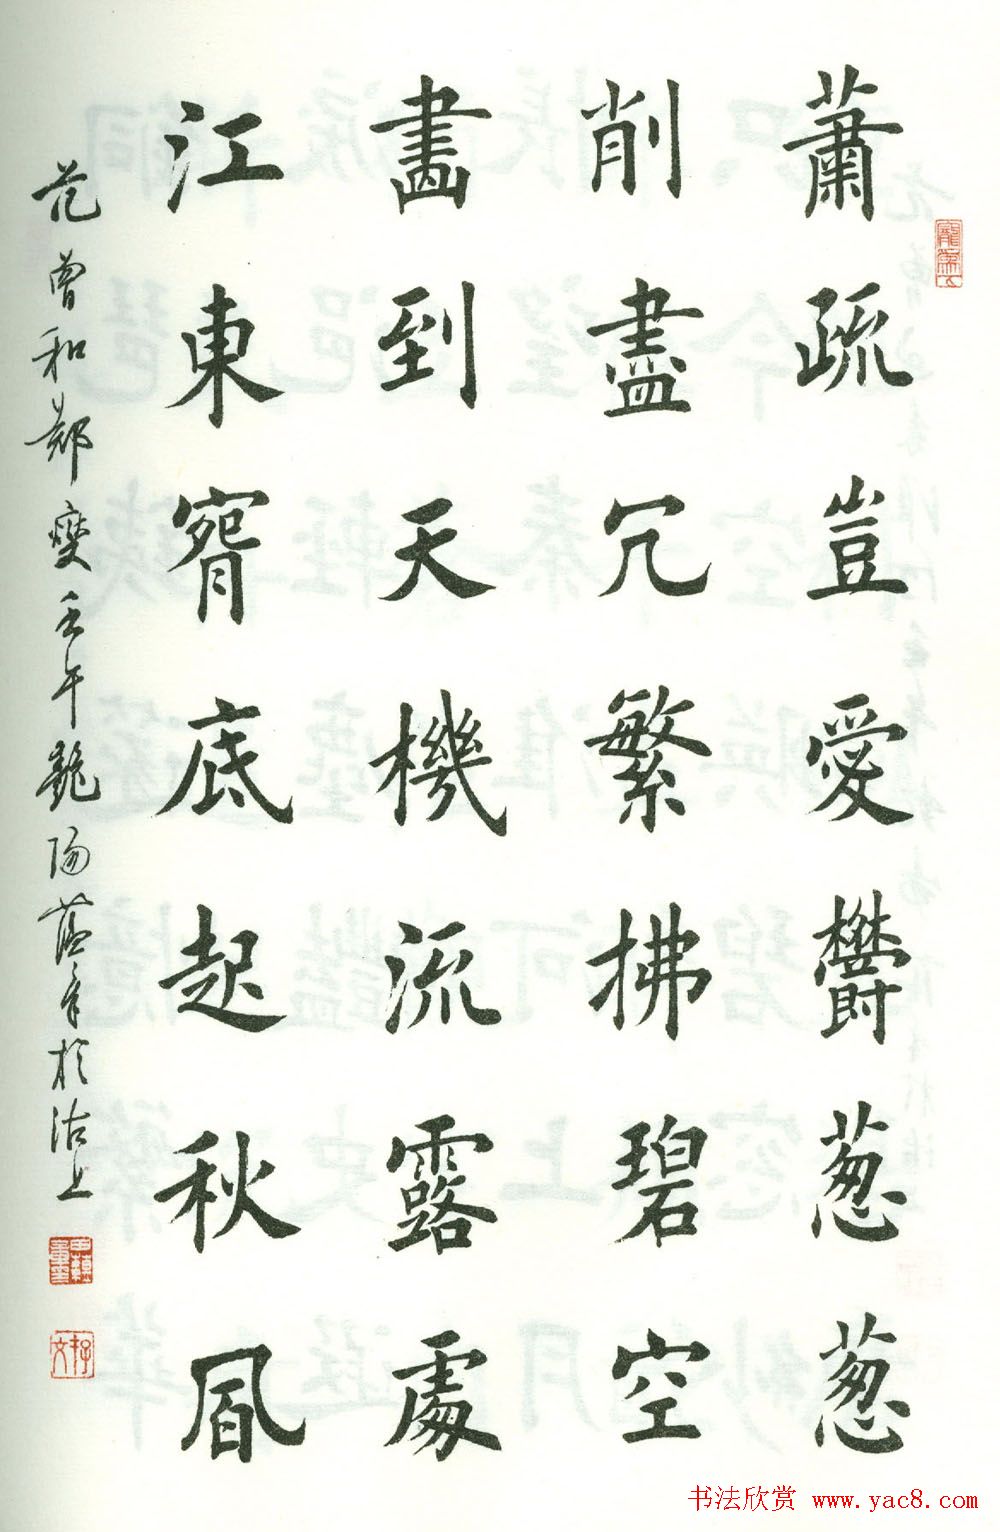 蕭疏豈愛鬱葱葱
削盡冗繁拂碧空
畫到天機流露處
江東腕底起秋風
范曾和鄭燮壬午陽蘊章於沽上
书法欣赏 www.yac8.com